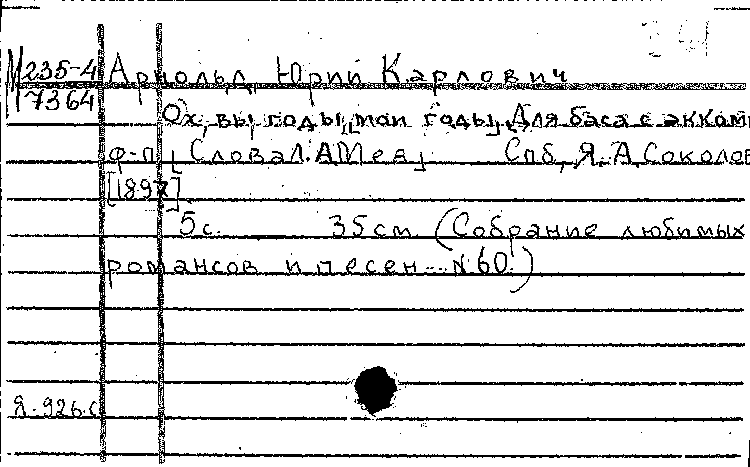 341
М 235-4 Арнольд, Юрий Карлович
7364
Ох, вы годы [мои годы]. Для баса с акком
ф-п. [Слова Л. А. Мея] Спб, Я. А. Соколов
[1897].
5 с. 35 см (Собрание любимых
романсов и песен... N 60.)
Я-926.с